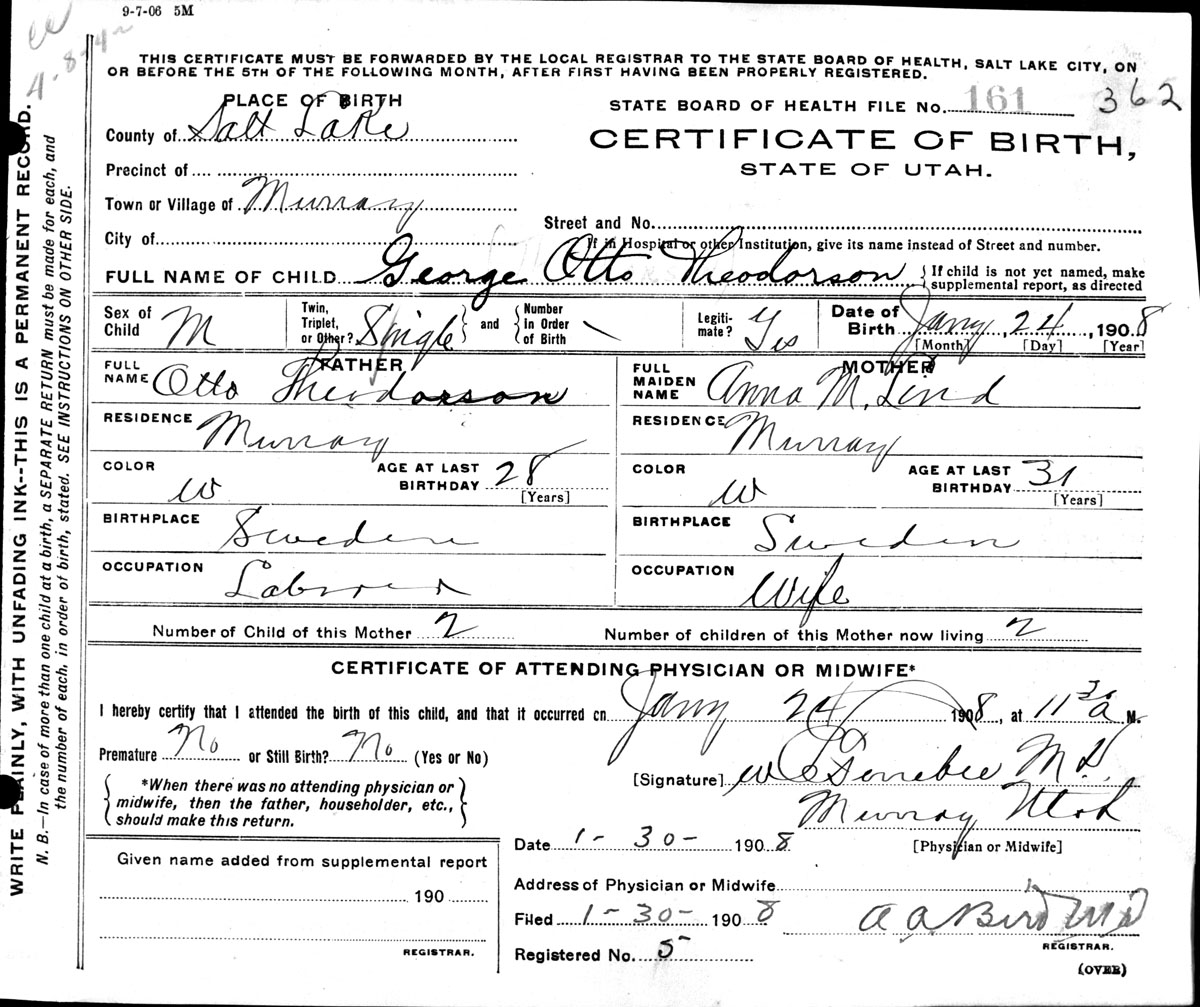 9-7-06 5M
THIS CERTIFICATE MUST BE FORWARDED BY THE LOCAL REGISTRAR TO THE STATE BOARD OF HEALTH, SALT LAKE CITY, ON
OR BEFORE THE 5TH OF THE FOLLOWING MONTH, AFTER FIRST HAVING BEEN PROPERLY REGISTERED.
WRITE PLAINLY, WITH UNFADING INK--THIS IS A PERMANENT RECORD.
N. B.—In case of more than one child at a birth, a SEPARATE RETURN must be made for each, and
the number of each, in order of birth, stated. SEE INSTRUCTIONS ON OTHER SIDE.
PLACE OF BIRTH
County of Salt Lake
Precinct of
Town or Village of Murray
City of
STATE BOARD OF HEALTH FILE No. 161 362
CERTIFICATE OF BIRTH,
STATE OF UTAH.
Street and No.
If in Hospital or other Institution, give its name instead of Street and number.
FULL NAME OF CHILD George Otto Theodorson { If child is not yet named, make
supplemental report, as directed
Sex of Child M
Twin, Triplet, or Other? Single } and { Number In Order of Birth
Legiti-mate? Yes
Date of Birth Jany 24, 1908
[Month] [Day] [Year]
FATHER
FULL NAME Otto Theodorson
RESIDENCE Murray
COLOR W AGE AT LAST BIRTHDAY 28 [Years]
BIRTHPLACE Sweden
OCCUPATION Laborer
MOTHER
FULL MAIDEN NAME Anna M. Lind
RESIDENCE Murray
COLOR W AGE AT LAST BIRTHDAY 31 [Years]
BIRTHPLACE Sweden
OCCUPATION Wife
Number of Child of this Mother 2 Number of children of this Mother now living 2
CERTIFICATE OF ATTENDING PHYSICIAN OR MIDWIFE*
I hereby certify that I attended the birth of this child, and that it occurred on Jany 24 1908, at 11 30 a M.
Premature No or Still Birth? No (Yes or No)
{ *When there was no attending physician or
midwife, then the father, householder, etc.,
should make this return. }
[Signature] M.D.
Murray Utah
[Physician or Midwife]
Date 1-30-1908
Given name added from supplemental report
190
REGISTRAR.
Address of Physician or Midwife
Filed 1-30-1908 A A Bird MD
REGISTRAR.
Registered No. 5
(OVER)